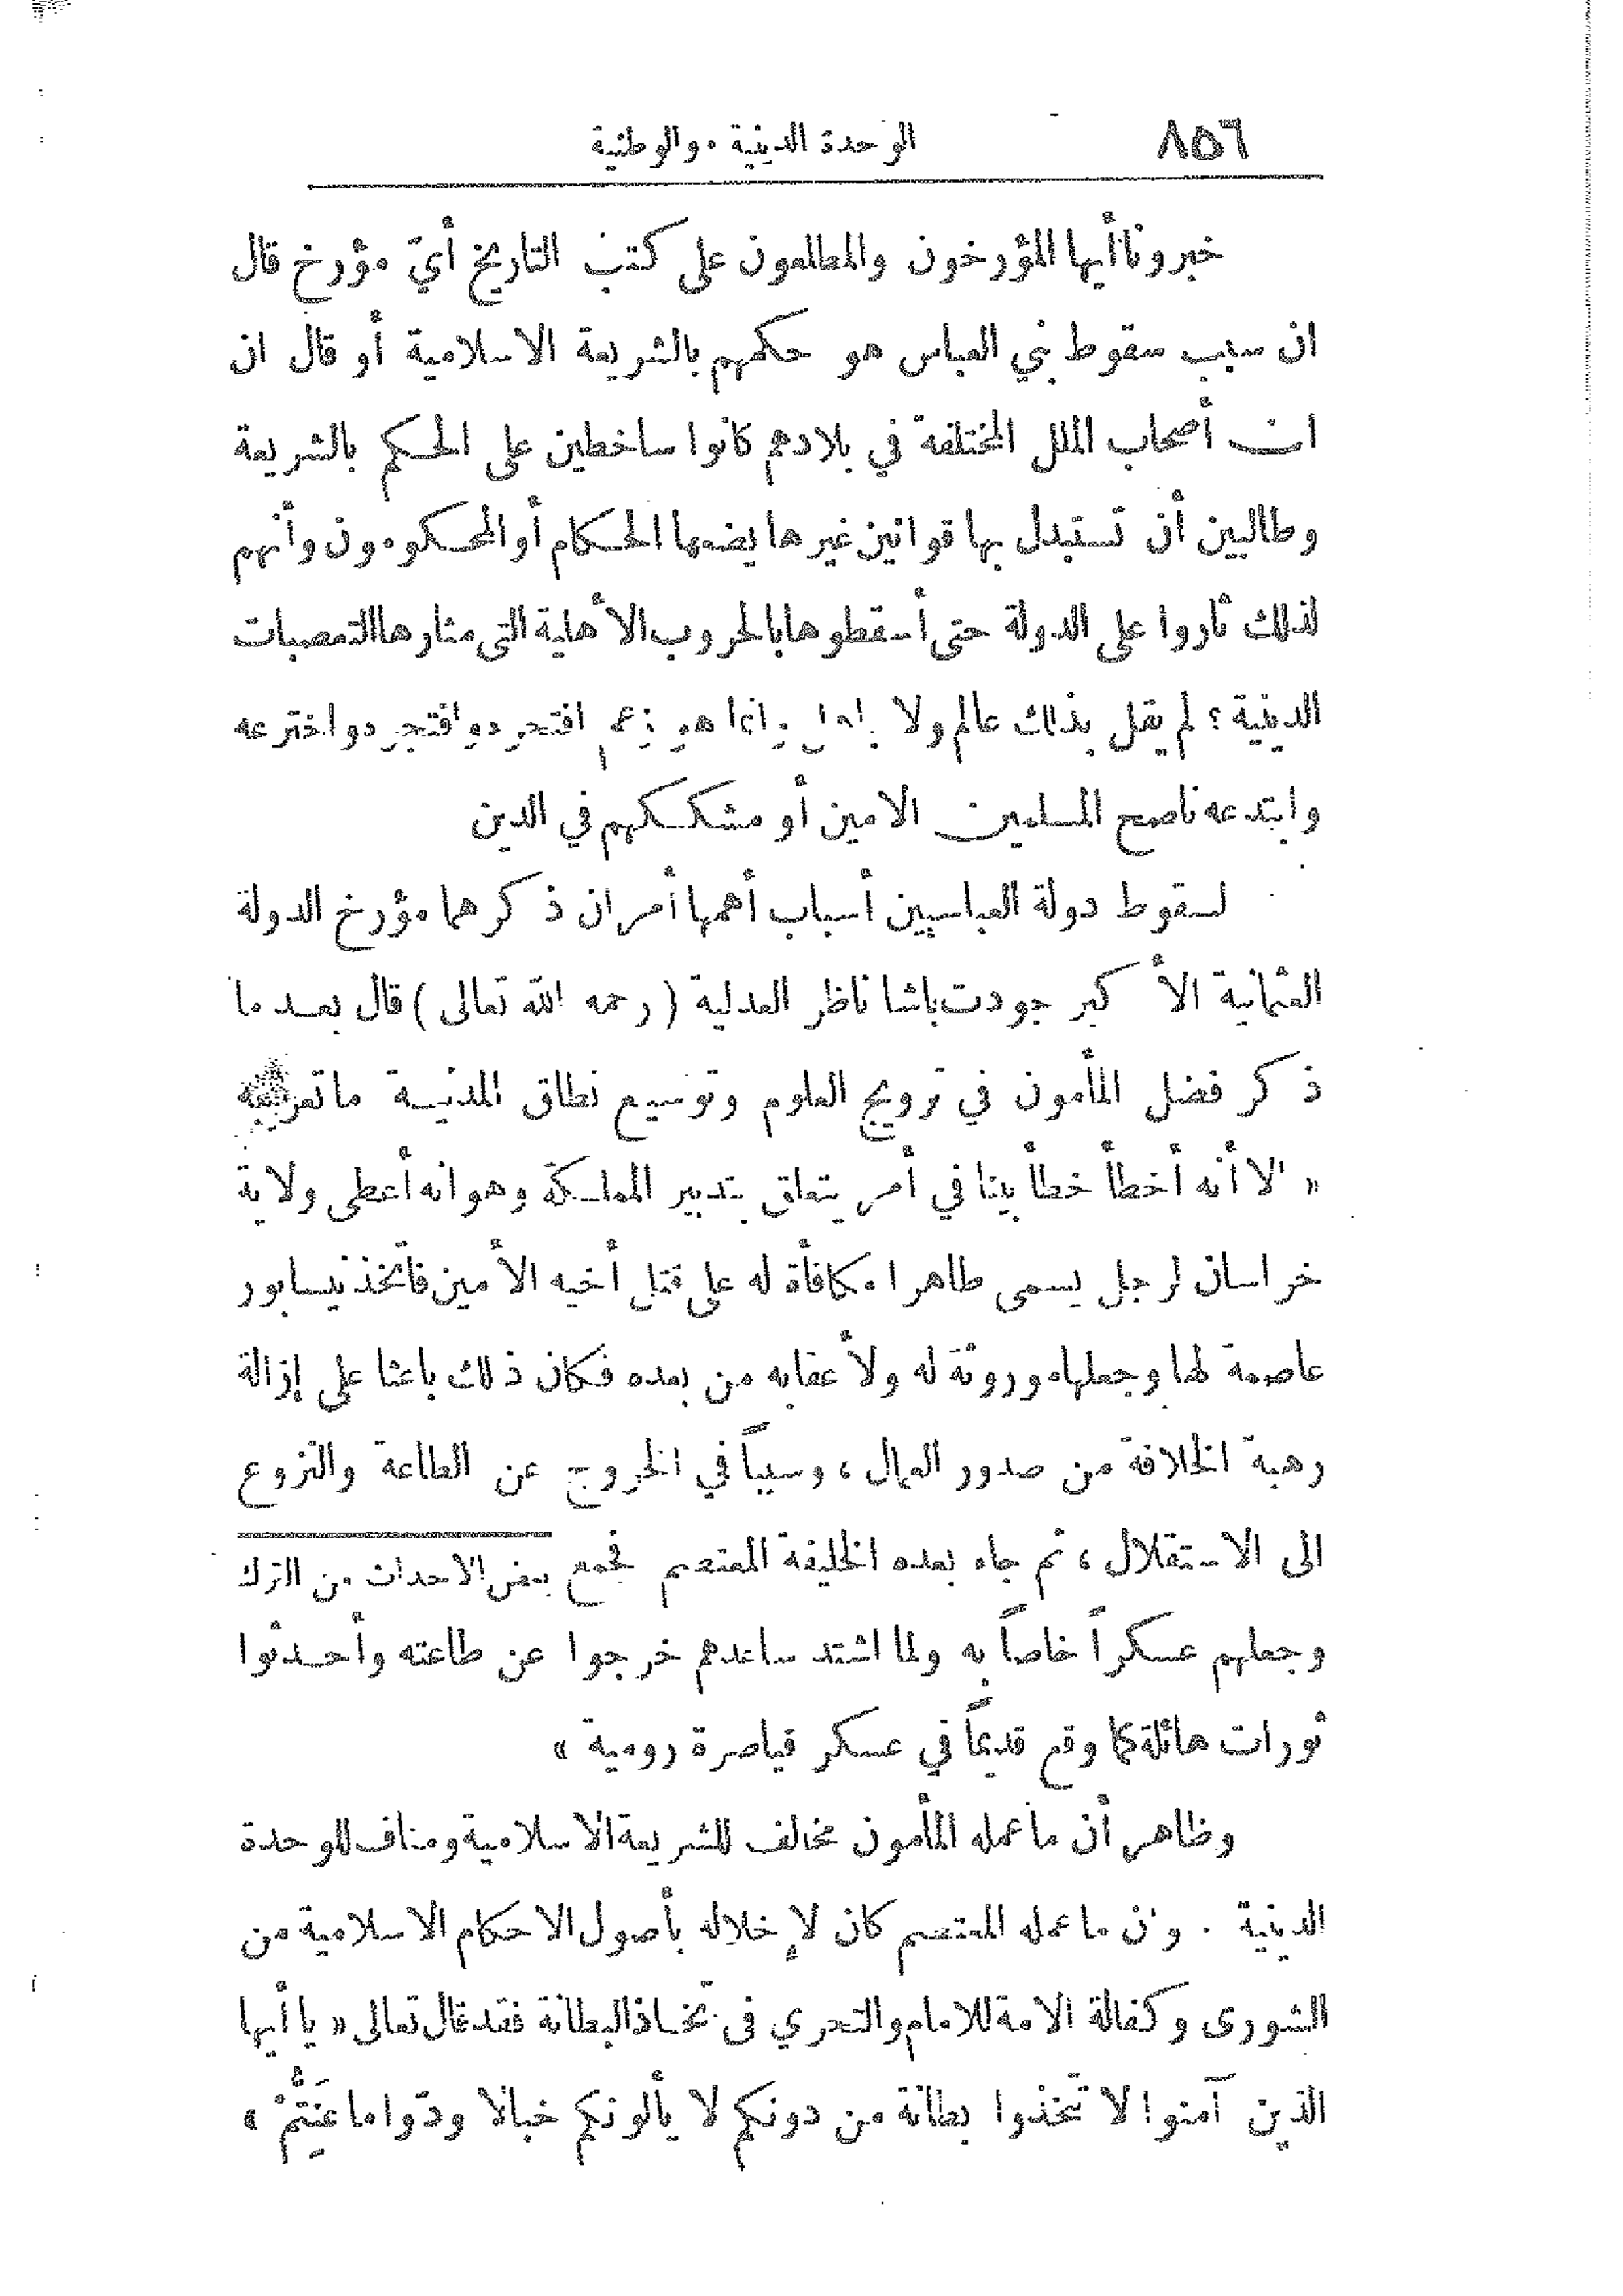 ٨٥٦ الوحدة الدينية والوطنية
خبرونا أيها المؤرخون والمطلعون على كتب التاريخ أيّ مؤرخ قال
ان سبب سقوط بني العباس هو حكمهم بالشريعة الاسلامية أو قال ان
ان أصحاب الملل المختلفة في بلادهم كانوا ساخطين على الحكم بالشريعة
وطالبين أن تستبدل بها قوانين غيرها يضعها الحكام أو المحكومون وأنهم
لذلك ثاروا على الدولة حتى أسقطوها بالحروب الأهلية التي مثارها التعصبات
الدينية ؟ لم يقل بذلك عالم ولا وانما هو زعم واختر عه
وابتدعه ناصح المسلمين الامين أو مشككهم في الدين
لسقوط دولة العباسيين أسباب أهمها أمران ذكرهما مؤرخ الدولة
العثمانية الأكبر جودت باشا ناظر العدلية ( رحمه الله تعالى ) قال بعد ما
ذكر فضل المأمون في ترويج العلوم وتوسيع نطاق المدنية ما تعريبه
« الا أنه أخطأ خطأ بينا في أمر يتعلق بتدبير المملكة وهو انه أعطى ولاية
خراسان لرجل يسمى طاهرا مكافأة له على قتل أخيه الأمين فاتخذ نيسابور
عاصمة لها وجعلها موروثة له ولأعقابه من بعده فكان ذلك باعثا على إزالة
رهبة الخلافة من صدور العمال ، وسبباً في الخروج عن الطاعة والنزوع
الى الاستقلال ، ثم جاء بعده الخليفة المعتصم فجمع بعض الاحداث من الترك
وجعلهم عسكراً خاصاً به ولما اشتد ساعدهم خرجوا عن طاعته وأحدثوا
ثورات هائلة كما وقع قديماً في عسكر قياصرة رومية »
وظاهر أن ما عمله المأمون مخالف للشريعة الاسلامية ومناف للوحدة
الدينية . وان ما عمله المعتصم كان لإخلاله بأصول الاحكام الاسلامية من
الشورى وكفالة الامة للامام والتحري في تخاذ البطانة فقد قال تعالى « يا أيها
الذين آمنوا لا تتخذوا بطانة من دونكم لا يألونكم خبالا ودّوا ما عَنِتُّمْ »